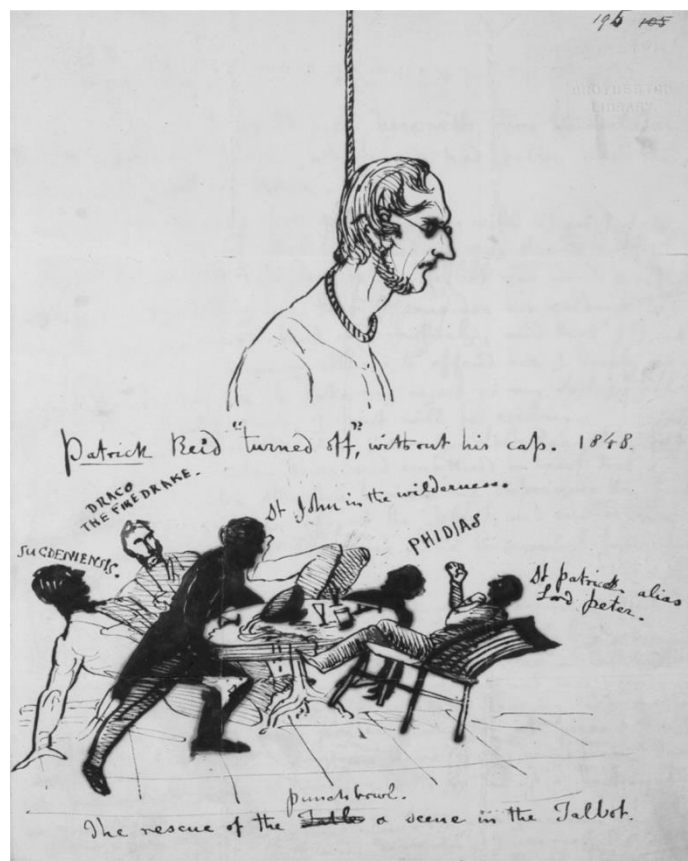 195 105
Patrick Reid "turned off", without his cap. 1848.
DRACO
THE FIREDRAKE.
St John in the wilderness.
PHIDIAS
SUGDENIENSIS.
St Patrick alias
Lord Peter.
punchbowl.
The rescue of the Table a scene in the Talbot.